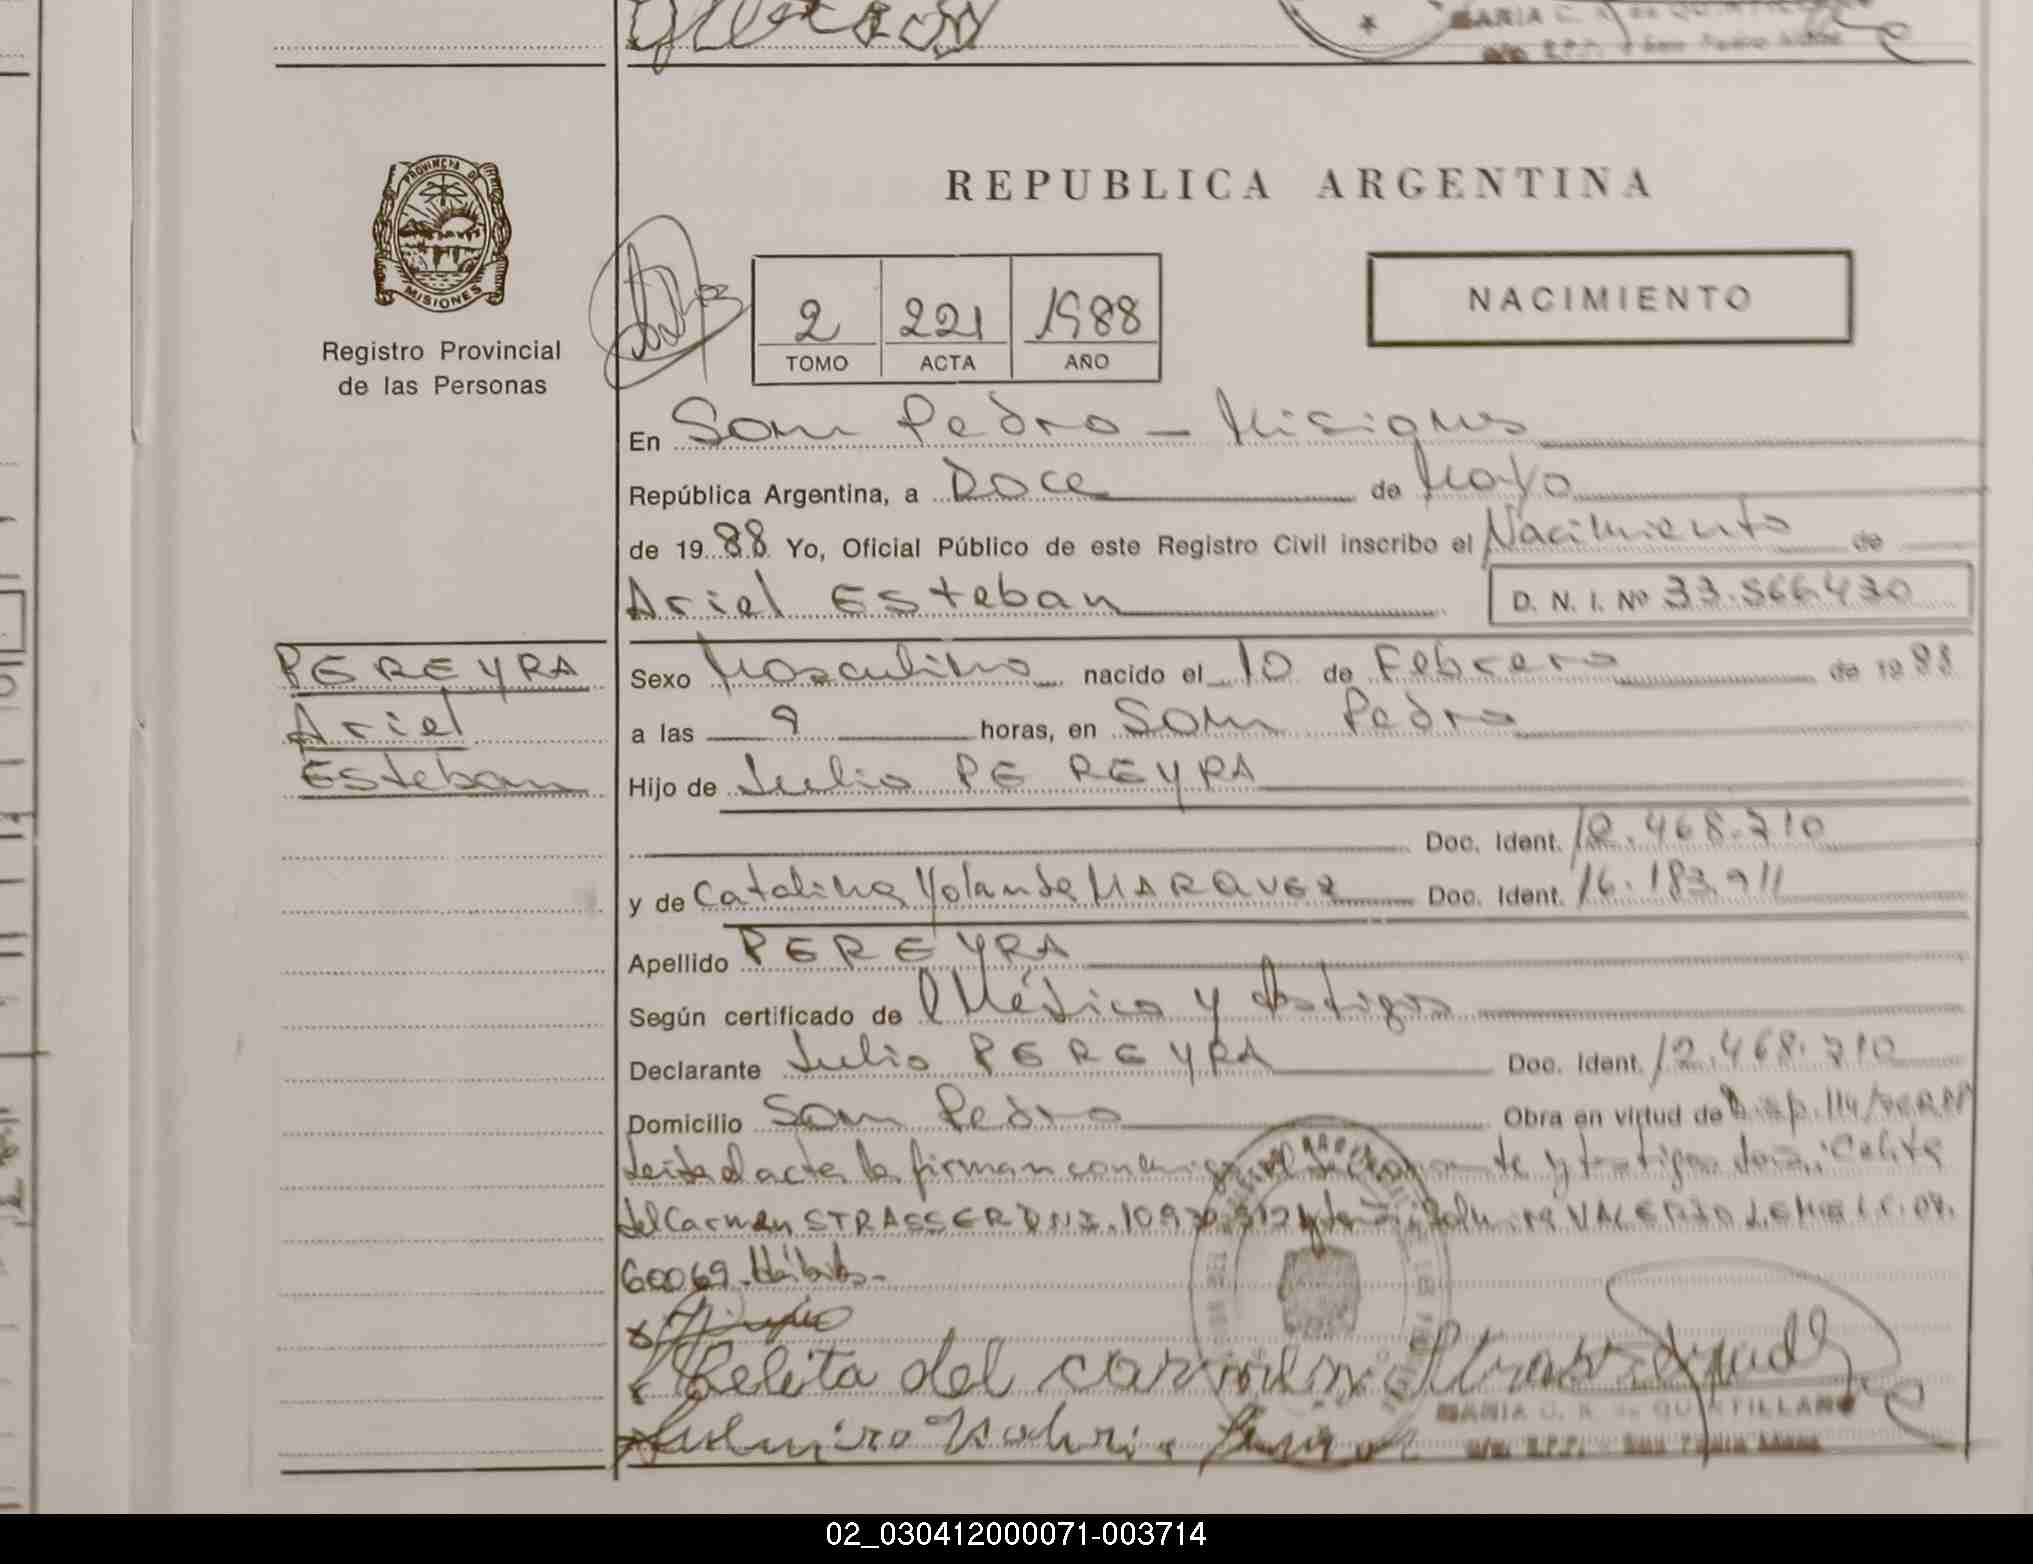 PROVINCIA DE
MISIONES
Registro Provincial
de las Personas
REPUBLICA ARGENTINA
NACIMIENTO
2 221 1988
TOMO ACTA AÑO
En San Pedro - Misiones
República Argentina, a Doce de Mayo
de 1988 Yo, Oficial Público de este Registro Civil inscribo el Nacimiento de
Ariel Esteban D. N. I. Nº 33.566.430
PEREYRA
Ariel
Esteban
Sexo Masculino nacido el 10 de Febrero de 1988
a las 9 horas, en San Pedro
Hijo de Julio PEREYRA
Doc. Ident. 12.468.710
y de Catalina Yolanda MARQUEZ Doc. Ident. 16.183.911
Apellido PEREYRA
Según certificado de Médico y testigos
Declarante Julio PEREYRA Doc. Ident. 12.468.710
Domicilio San Pedro Obra en virtud de Disp. 114/
Leida el acta la firman conmigo el declarante y testigos
del Carmen STRASSER DNI. VALERIO
60069.
Celita del carmen
MARIA C. R. de QUINTILLAN
02_030412000071-003714